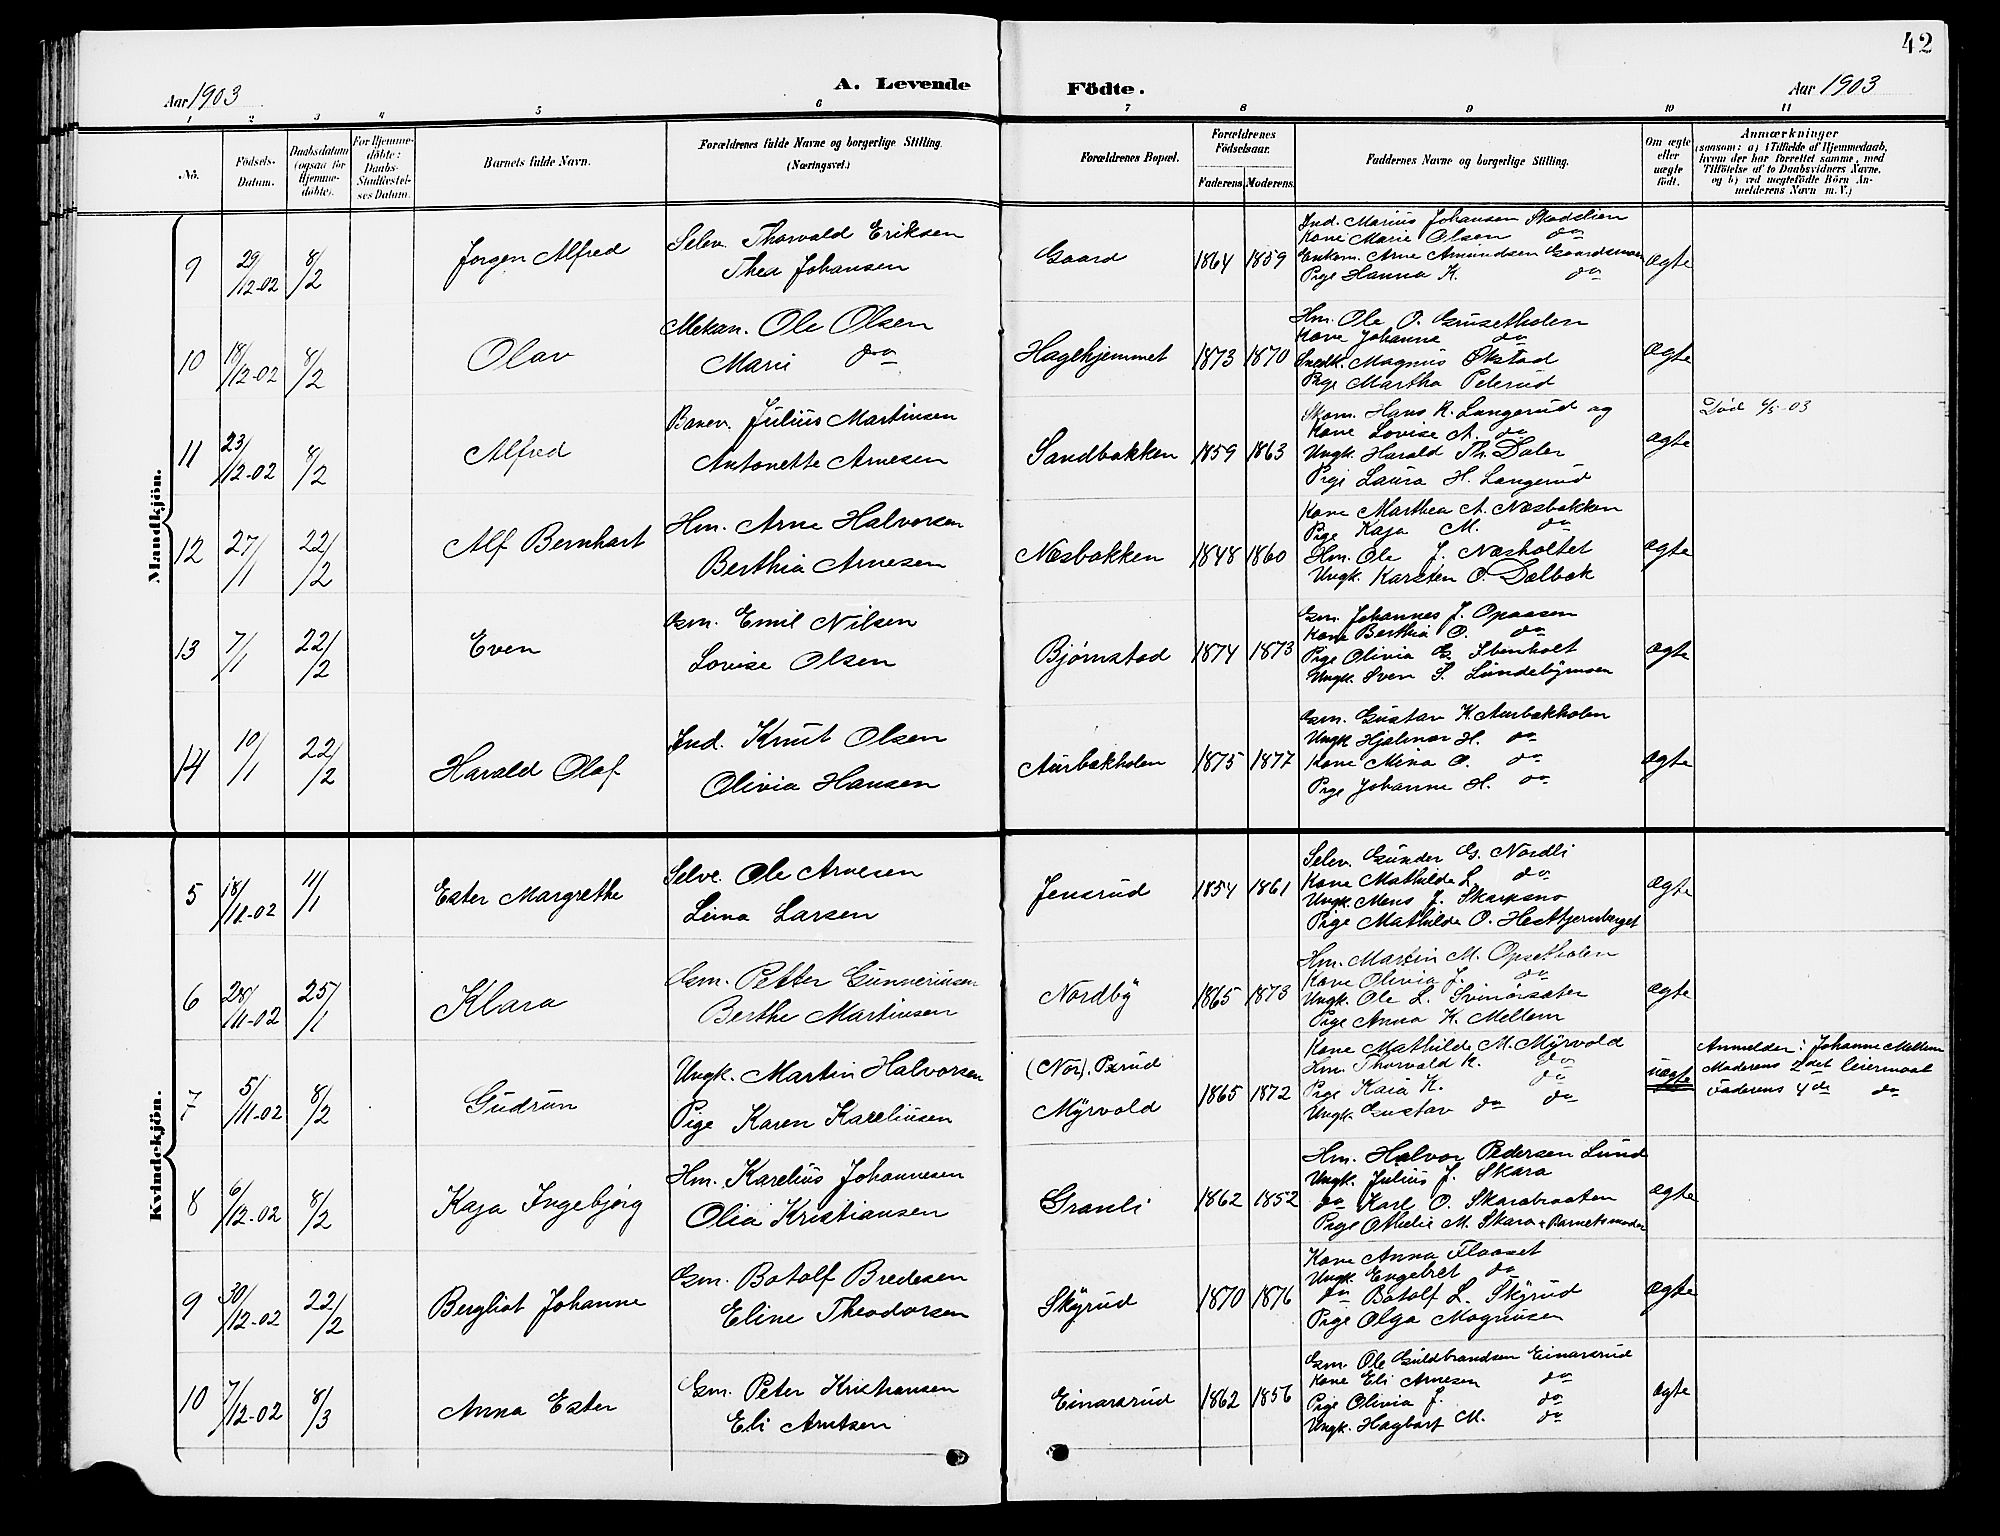 42
Aar 1903
A. Levende
Födte.
Aar 1903
1 2 3 4 5 6 7 8 9 10 11
Nö.
Födsels-
Datum.
Daabsdatum
(ogsaa for
Hjemme-
döbte).
For Hjemme-
döbte:
Daabs-
Stadfæstel-
ses Datum.
Barnets fulde Navn.
Forældrenes fulde Navne og borgerlige Stilling.
(Næringsvei.)
Forældrenes Bopæl.
Forældrenes
Födselsaar.
Faderens. Moderens.
Faddernes Navne og borgerlige Stilling.
Om ægte
eller
uægte
födt.
Anmærkninger
(saasom: a) i Tilfælde af Hjemmedaab,
hvem der har forrettet samme, med
Tilföielse af to Daabsvidners Navne,
og b) ved uægtefödte Börn An-
melderens Navn m. V.)
Mandkjön.
9 29/12-02 8/2 Jørgen Alfred
Selv. Thorvald Eriksen
Thea Johansen
Gaard 1864 1859
Ind. Marius Johansen Skodslien
Kone Marie Olsen do
Enkem. Arne Amundsen Gaardsmoen
Pige Hanna K. do
ægte
10 18/12-02 8/2 Olav
Mekan. Ole Olsen
Marie do
Hagehjemmet 1873 1870
Hm. Ole O. Grusetholen
Kone Johanne do
Snedk. Magnus Økstad
Pige Martha Pelerud
ægte
11 23/12-02 8/2 Alfred
Banev. Julius Martinsen
Antonette Arnesen
Sandbakken 1859 1863
Skom. Hans R. Langerud og
Kone Lovise A. do
Ungk. Harald Th. Daler
Pige Laura H. Langerud
ægte
Død 6/5-03
12 27/1 22/2 Alf Bernhart
Hm. Arne Halvorsen
Berthia Arnesen
Næsbakken 1848 1860
Kone Marthea A. Næsbakken
Pige Kaja M. do
Hm. Ole J. Næsholtet
Ungk. Karsten O. Dælbæk
ægte
13 7/1 22/2 Even
Gm. Emil Nilsen
Lovise Olsen
Bjørnstad 1874 1873
Gm. Johannes J. Opaasen
Kone Berthia O. do
Pige Olivia G. Stenholt
Ungk. Sven S. Lundebymoen
ægte
14 10/1 22/2 Harald Olaf
Ind. Knut Olsen
Olivia Hansen
Aurbakholen 1875 1877
Gm. Gustav K. Aurbakholen
Ungk Hjalmar H. do
Kone Mina O. do
Pige Johanne H. do
ægte
Kvindekjön.
5 18/11-02 11/1 Ester Margrethe
Selve. Ole Arnesen
Lina Larsen
Jensrud 1854 1861
Selev. Gunder G. Nordli
Kone Mathilde L. do
Ungk. Mons J. Skarpsno
Pige Mathilde O. Hestkjernberget
ægte
6 28/11-02 25/1 Klara
Gm. Petter Gunneriusen
Berthe Martinsen
Nordby 1865 1873
Hm. Martin M. Opsetholen
Kone Olivia J. do
Ungk. Ole L. Svinørsæter
Pige Anna K. Mellem
ægte
7 5/11-02 8/2 Gudrun
Ungk. Martin Halvorsen
Pige Karen Kareliusen
(Nor). Pærud
Myrvold
1865 1872
Kone Mathilde M. Myrvold
Hm. Thorvald K. do
Pige Kaia K. do
Ungk. Gustav do do
uægte
Anmelder: Johanne Mellem
Moderens 2det leiermaal
Faderens 4de do
8 6/12-02 8/2 Kaja Ingebjørg
Hm. Karelius Johannesen
Olia Kristiansen
Granli 1862 1852
Hm. Halvor Pedersen Lund
Ungk. Julius J. Skara
do Karl O. Skarabraaten
Pige Othelie M. Skara + Barnets moder
ægte
9 30/12-02 22/2 Bergliot Johanne
Gm. Botolf Bredesen
Eline Theodorsen
Skyrud 1870 1876
Kone Anna Flaaset
Ungk. Engebret do
do Botolf L. Skyrud
Pige Olga Magnusen
ægte
10 7/12-02 8/3 Anna Ester
Gm. Peter Kristiansen
Eli Arntsen
Einarsrud 1862 1856
Gm. Ole Guldbrandsen Einarsrud
Kone Eli Arnesen do
Pige Olivia J. do
Ungk. Hagbart M. do
ægte